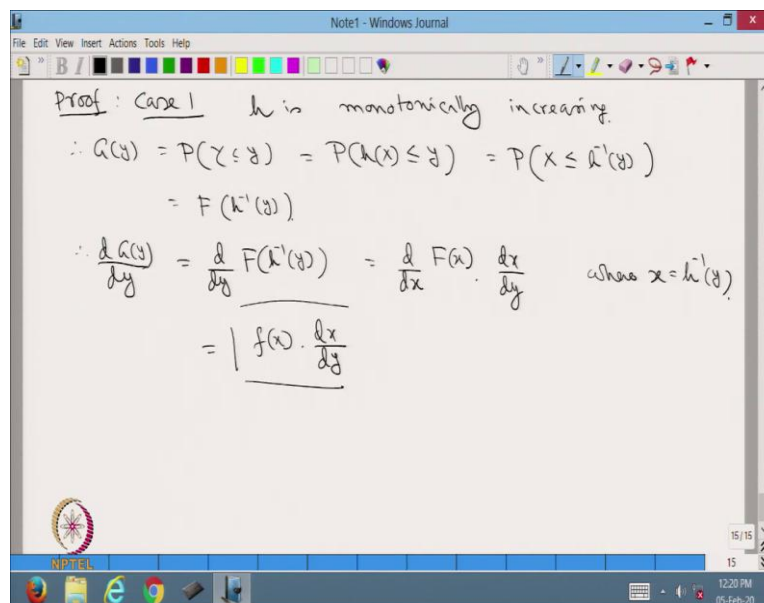 Note1 - Windows Journal
File Edit View Insert Actions Tools Help
B I
Proof : Case 1 h is monotonically increasing.
∴ G(y) = P(Y ≤ y) = P(h(X) ≤ y) = P(X ≤ h⁻¹(y))
= F(h⁻¹(y))
∴ dG(y)/dy = d/dy F(h⁻¹(y)) = d/dx F(x) · dx/dy where x = h⁻¹(y).
= | f(x) · dx/dy
NPTEL
15/15
15
12:20 PM
05-Feb-20